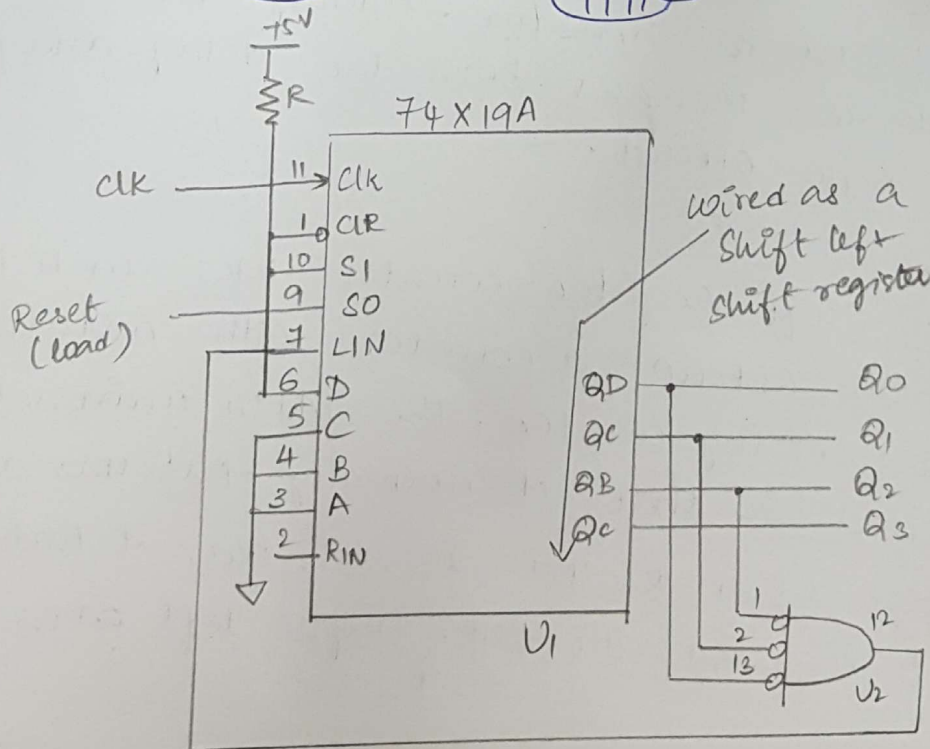 1111
+5V
R
74X19A
Clk
11
Clk
1
CLR
10
S1
9
S0
Reset
(load)
7
LIN
6
D
5
C
4
B
3
A
2
RIN
wired as a
shift left
shift register
QD
Q0
QC
Q1
QB
Q2
QC
Q3
U1
1
2
13
12
U2